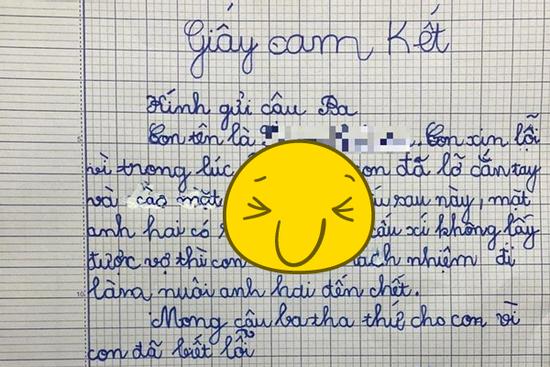 Giấy cam Kết
Kính gửi cậu Ba
Con tên là . Con xin lỗi
vì trong lúc con đã lỡ cắn tay
và cào mặt sau này, mặt
anh hai có xấu xí không lấy
được vợ thì con nhiệm đi
làm nuôi anh hai đến chết.
Mong cậu ba tha thứ cho con vì
con đã biết lỗi
5
10